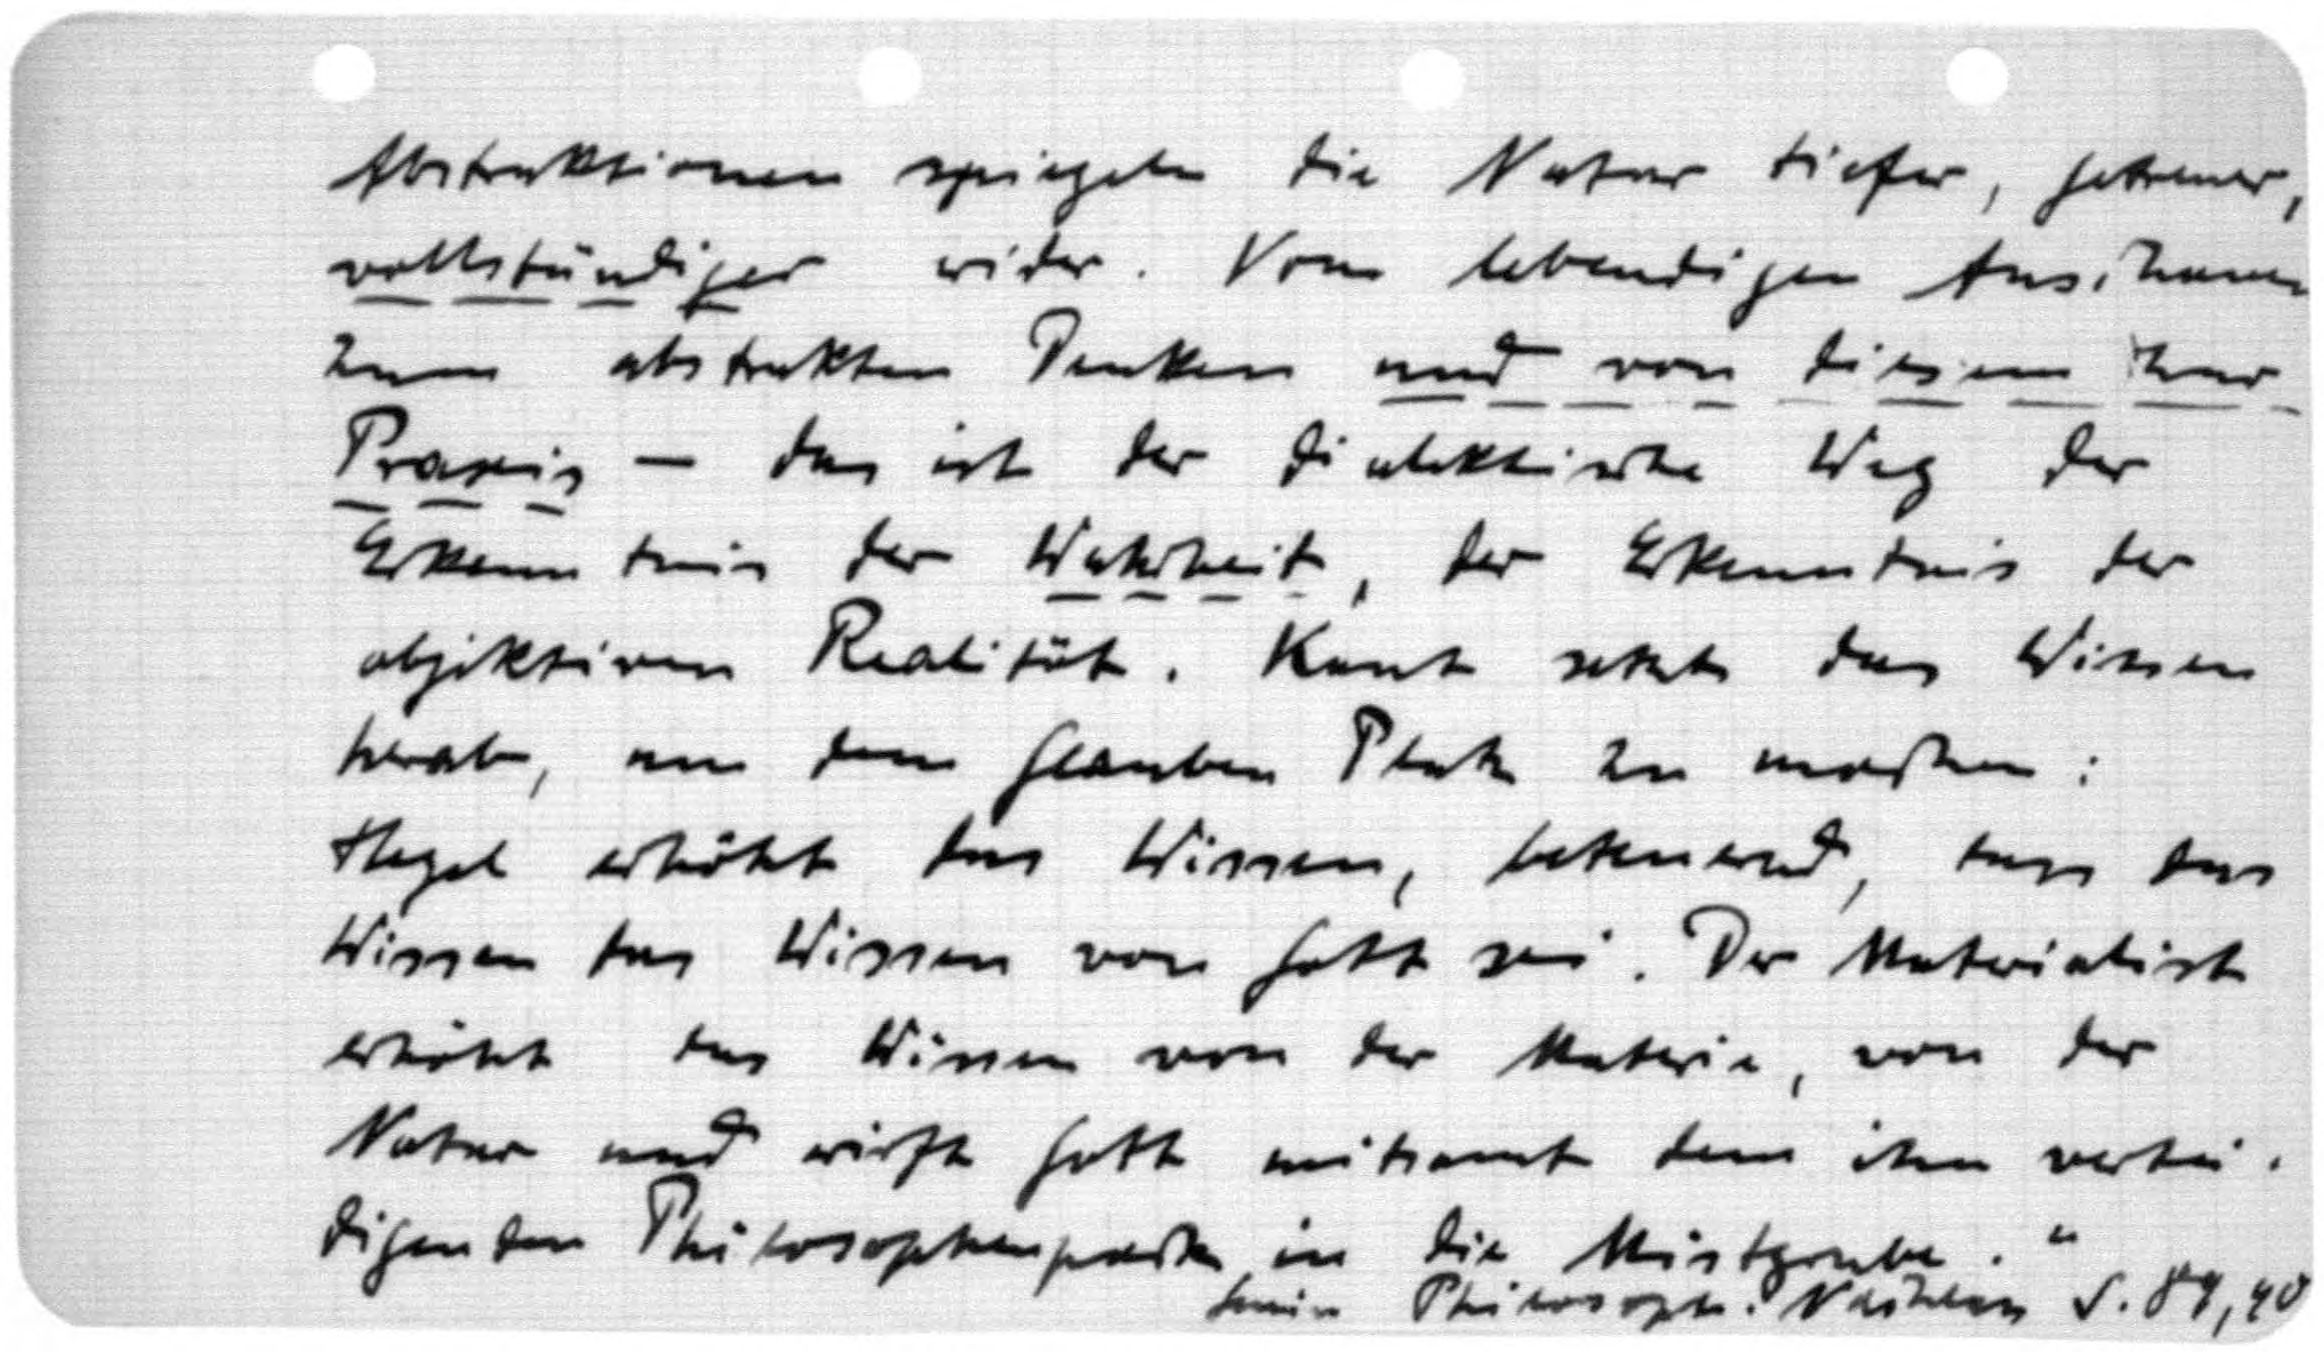 Abstraktionen spiegeln die Natur tiefer, getreuer,
vollständiger wider. Vom lebendigen Anschauen
zum abstrakten Denken und von diesem zur
Praxis – das ist der dialektische Weg der
Erkenntnis der Wahrheit, der Erkenntnis der
objektiven Realität. Kant setzt das Wissen
herab, um dem Glauben Platz zu machen:
Hegel erhöht das Wissen, beteuernd, dass das
Wissen das Wissen von Gott sei. Der Materialist
erhöht das Wissen von der Materie, von der
Natur und wirft Gott mitsamt dem ihn vertei-
digenden Philosophenpack in die Mistgrube."
Lenin Philosoph. Nachlass S. 89, 90